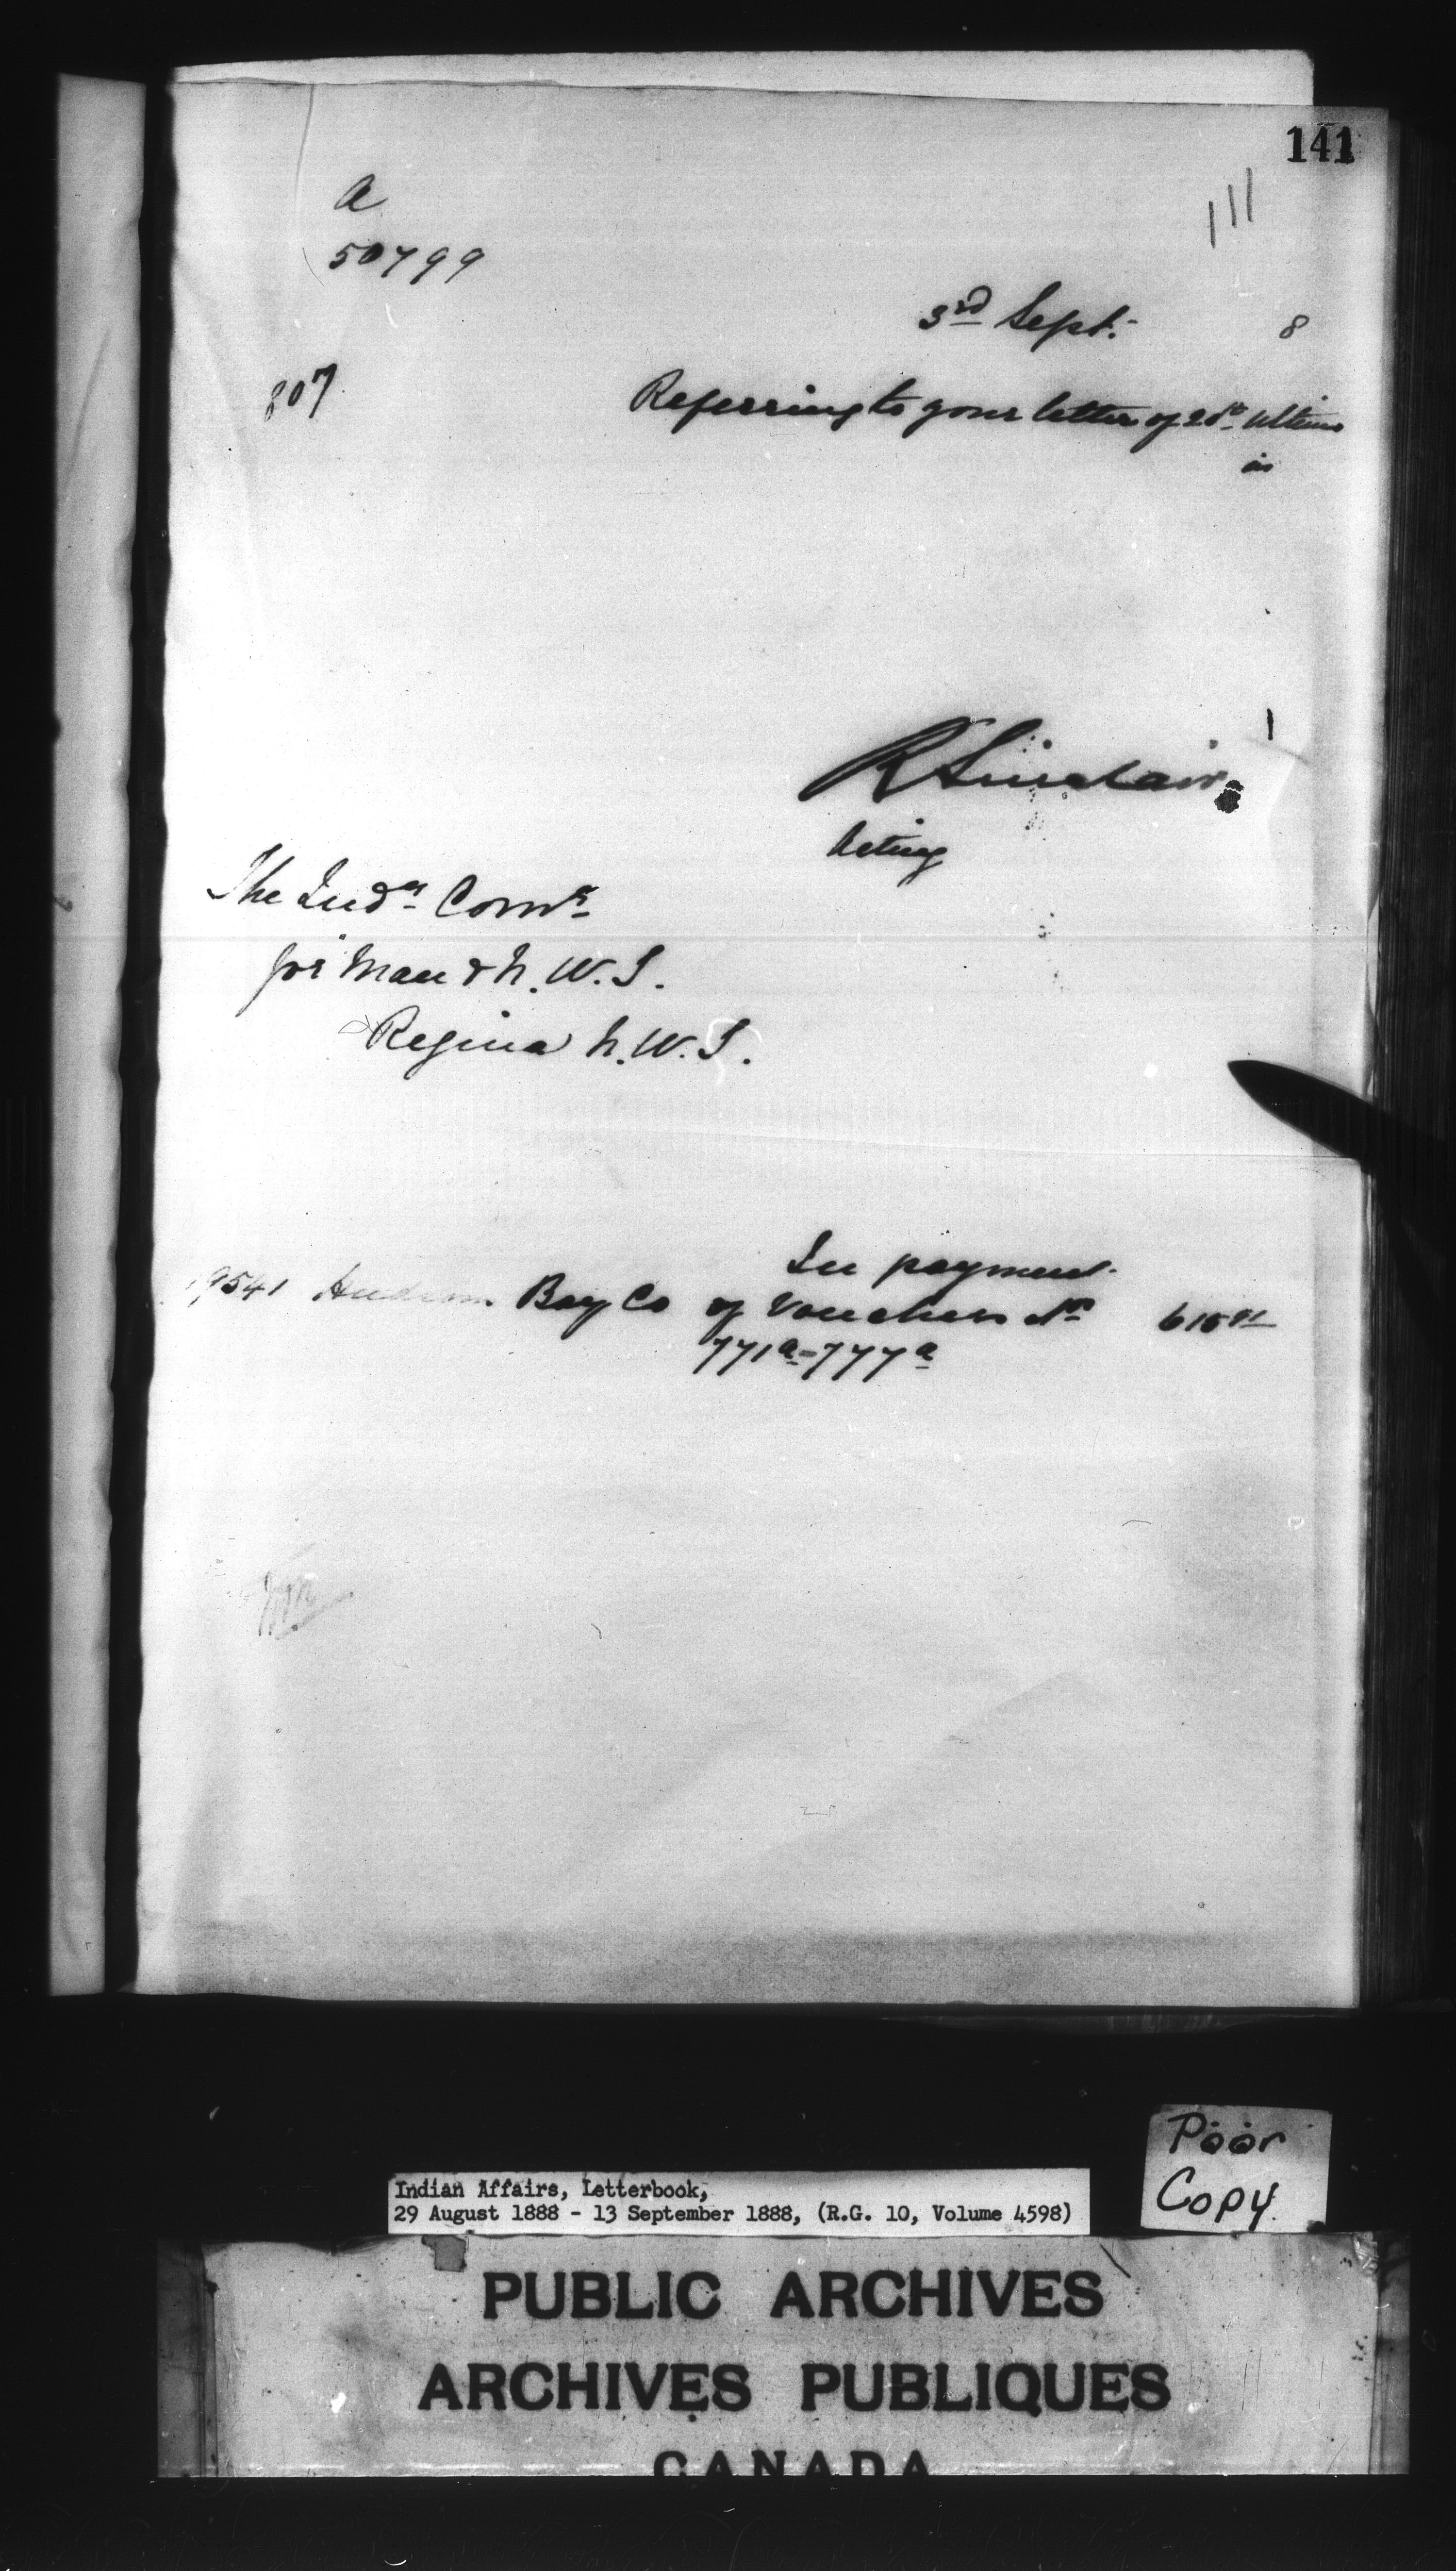 141
111
a
50799
3rd Sept. 8
807 Referring to your letter of 28th Ultimo
is
R Sinclair
Acting
The Indn Comr
for Man & N.W.T.
Regina N.W.T.
In payment
9541 Hudson Bay Co of Vouchers Nos
771a-777a
Poor
Copy
Indian Affairs, Letterbook,
29 August 1888 - 13 September 1888, (R.G. 10, Volume 4598)
PUBLIC ARCHIVES
ARCHIVES PUBLIQUES
CANADA